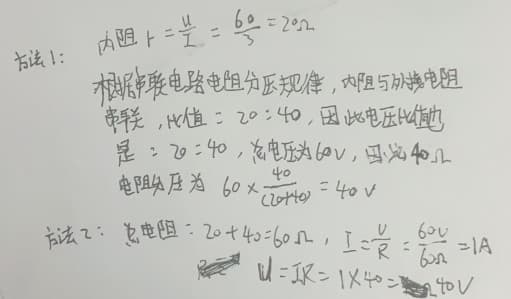 方法1: 内阻 r = U/I = 60/3 = 20Ω
根据串联电路电阻分压规律, 内阻与外接电阻
串联, 比值 : 20 : 40, 因此电压比值也
是 : 20 : 40, 总电压为60V, 因此 40Ω
电阻分压为 60 × 40/(20+40) = 40V
方法2: 总电阻: 20+40=60Ω, I = U/R = 60V/60Ω = 1A
U = IR = 1×40 = 40V